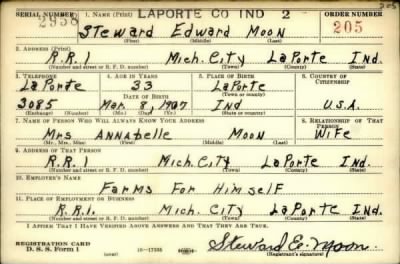 205
SERIAL NUMBER 1. NAME (Print) LAPORTE CO IND 2 ORDER NUMBER
2958 Steward Edward Moon 205
(First) (Middle) (Last)
2. ADDRESS (Print)
R.R.1 Mich. City LaPorte Ind.
(Number and street or R. F. D. number) (Town) (County) (State)
3. TELEPHONE 4. AGE IN YEARS 5. PLACE OF BIRTH 6. COUNTRY OF CITIZENSHIP
LaPorte 33 LaPorte
DATE OF BIRTH (Town or county)
3085 Mar. 8, 1907 Ind U.S.A.
(Exchange) (Number) (Mo.) (Day) (Yr.) (State or country)
7. NAME OF PERSON WHO WILL ALWAYS KNOW YOUR ADDRESS 8. RELATIONSHIP OF THAT PERSON
Mrs Annabelle Moon Wife
(Mr., Mrs., Miss) (First) (Middle) (Last)
9. ADDRESS OF THAT PERSON
R.R.1 Mich. City LaPorte Ind.
(Number and street or R. F. D. number) (Town) (County) (State)
10. EMPLOYER'S NAME
Farms For Himself
11. PLACE OF EMPLOYMENT OR BUSINESS
R.R.1. Mich. City LaPorte Ind.
(Number and street or R. F. D. number) (Town) (County) (State)
I AFFIRM THAT I HAVE VERIFIED ABOVE ANSWERS AND THAT THEY ARE TRUE.
REGISTRATION CARD
D. S. S. Form 1 16-17105 Steward E. Moon
(Registrant's signature)